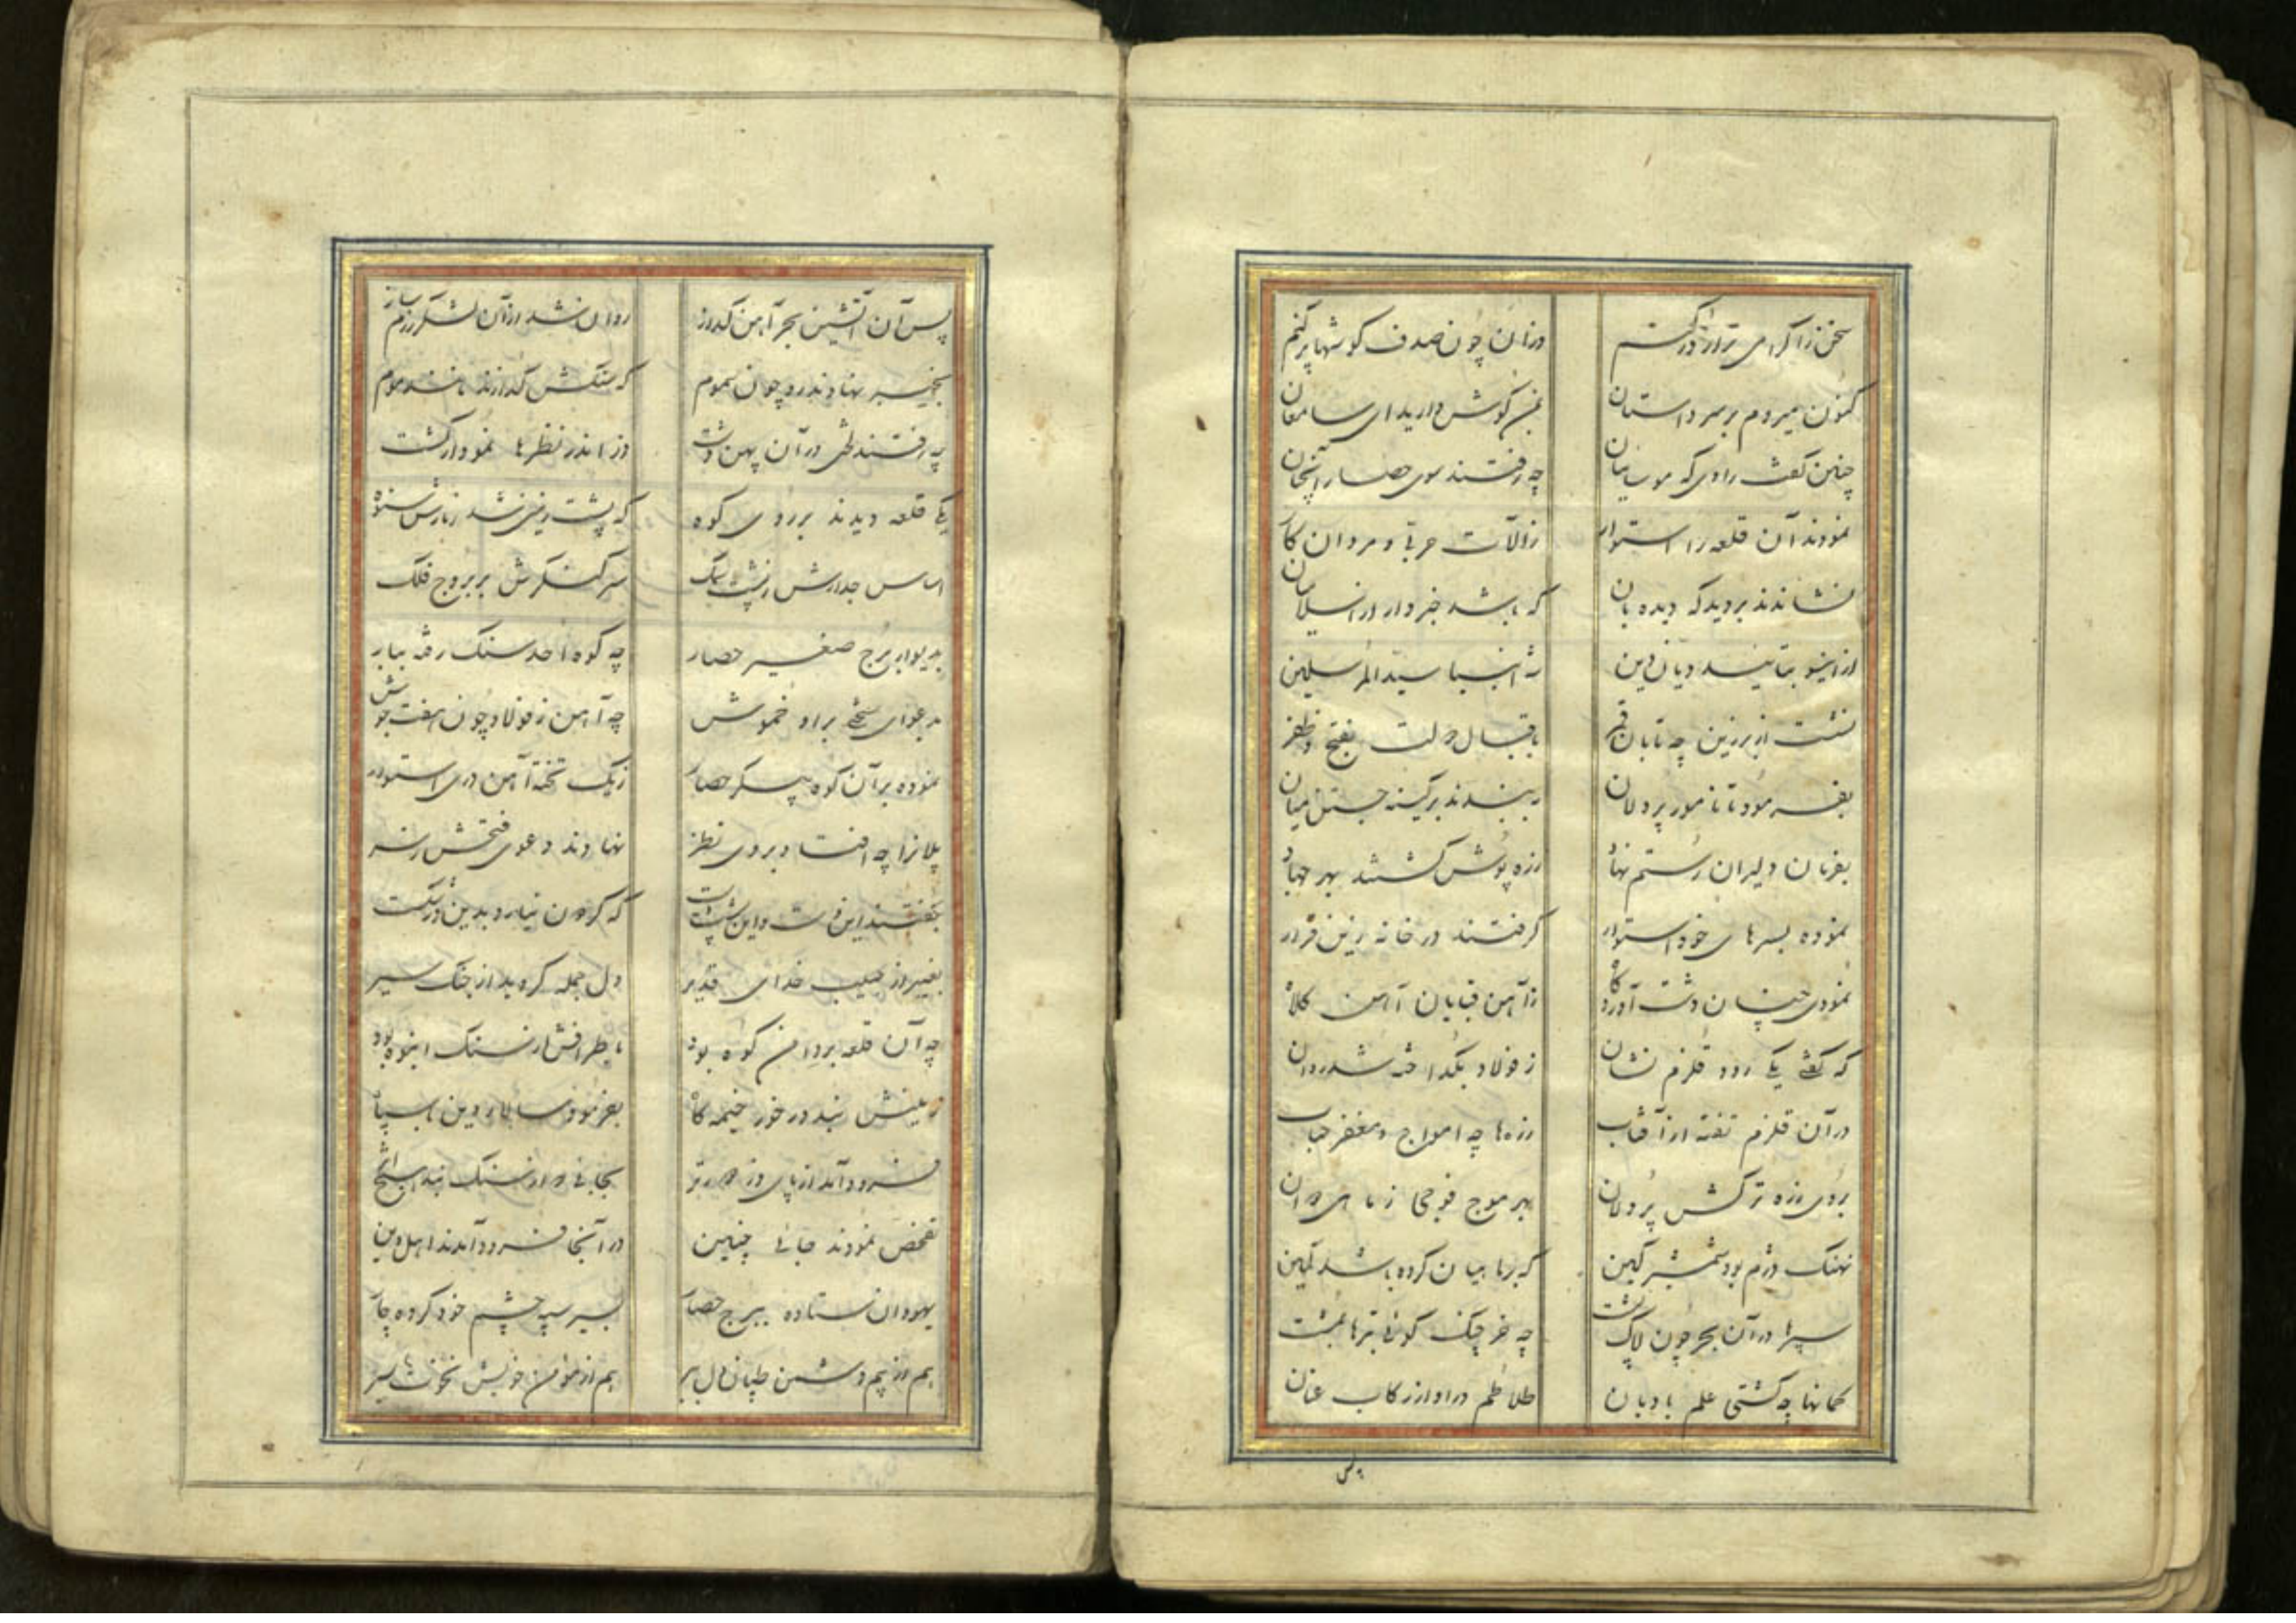 سخن را گرامی تر از در کنم
وزان چون صدف گوشها پر کنم
کنون میروم بر سر داستان
بمن گوش دارید ای سامعان
چنین گفت راوی که موسائیان
چه رفتند سوی حصار آنچنان
نمودند آن قلعه را استوار
ز آلات حربی و مردان کار
نشاندند بر دیدگه دیده بان
که باشد خبردار از اسلامیان
ازاینسو بتایید دیان دین
شه انبیا سید المرسلین
نشست از بر زین چه تابان قمر
باقبال دولت بفتح و ظفر
بفرمود تا نامور پردلان
ببندند بر کینه جستن میان
بفرمان دلیران رستم نهاد
زره پوش گشتند بهر جهاد
نموده بسرهای خود استوار
گرفتند در خانه زین قرار
نمودی چنان دشت آوردگاه
زآهن قبایان آهن کلاه
که گفتی یکی رود قلزم نشان
ز فولاد بگداخته شد روان
در آن قلزم تفته از آفتاب
زره‌ها چه امواج و مغفر حباب
بروی زره ترکش پردلان
بهر موج فوجی ز ماهی روان
نهنگ دژم بود شمشیر کین
که بر ماهیان کرده باشد کمین
سپرها در آن بحر چون لاک پشت
چه خرچنگ گوئی تبرها بمشت
کمانها چه کشتی علم بادبان
طلاطم در او از رکاب عنان
پس
پس آن آتشین بحر آهن گداز
روان شد از آن لشکر رزم ساز
بخیبر نهادند رو چون سموم
که سنگش گدازند مانند موم
چه رفتند لختی در آن پهن دشت
دز اندر نظرها نمودار گشت
یکی قلعه دیدند بر روی کوه
که پشت زمین شد ز بارش ستوه
اساس جدارش ز پشت سمک
سر کنگرش بر بروج فلک
بدیوار برج صغیر حصار
چه کوه احد سنگ رفته ببار
بدعوای سختی براو خموش
چه آهن ز فولاد چون هفت جوش
نموده بر آن کوه پیکر حصار
ز یک تخته آهن دری استوار
یلانرا چه افتاد بر وی نظر
نهادند دعوی فتحش ز سر
بگفتند این است و این پشت
که گردون نیارد بدین در شکست
بغیر از حبیب خدای قدیر
دل جمله گردید از جنگ سیر
چه آن قلعه بر دامن کوه بود
باطرافش از سنگ انبوه بود
زمینش نبد در خور خیمه گاه
بفرمود سالار دین با سپاه
فرود آمد از پای دز دورتر
بجائی که از سنگ نبد
تفحص نمودند جائی چنین
در آنجا فرود آمدند اهل دین
یهودان ستاده ببرج حصار
بسیر سپه چشم خود کرده چار
هم از بیم دشمن طپان دل ببر
هم از مؤمن خویش نخوت بسر